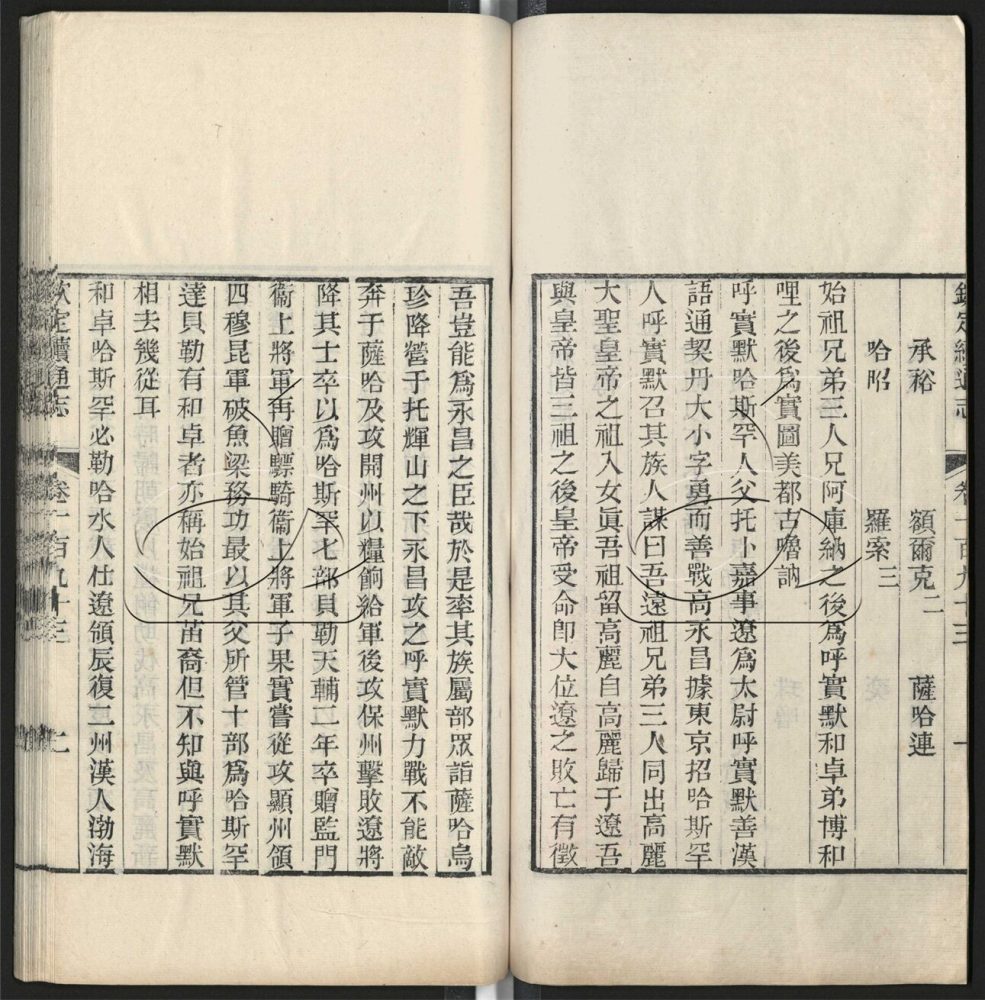 承裕　額爾克二　薩哈連
哈昭　羅索三
始祖兄弟三人兄阿庫納之後爲呼實默和卓弟博和
哩之後爲實圖美都古嚕訥
呼實默哈斯罕人父托卜嘉事遼爲太尉呼實默善漢
語通契丹大小字勇而善戰高永昌據東京招哈斯罕
人呼實默召其族人謀曰吾遠祖兄弟三人同出高麗
大聖皇帝之祖入女眞吾祖留高麗自高麗歸于遼吾
與皇帝皆三祖之後皇帝受命卽大位遼之敗亡有徵
吾豈能爲永昌之臣哉於是率其族屬部眾詣薩哈烏
珍降營于托輝山之下永昌攻之呼實默力戰不能敵
奔于薩哈及攻開州以糧餉給軍後攻保州擊敗遼將
降其士卒以爲哈斯罕七部貝勒天輔二年卒贈監門
衞上將軍再贈驃騎衞上將軍子果實嘗從攻顯州領
四穆昆軍破魚梁務功最以其父所管十部爲哈斯罕
達貝勒有和卓者亦稱始祖兄苗裔但不知與呼實默
相去幾從耳
和卓哈斯罕必勒哈水人仕遼領辰復二州漢人渤海
欽定續通志　卷一百九十三